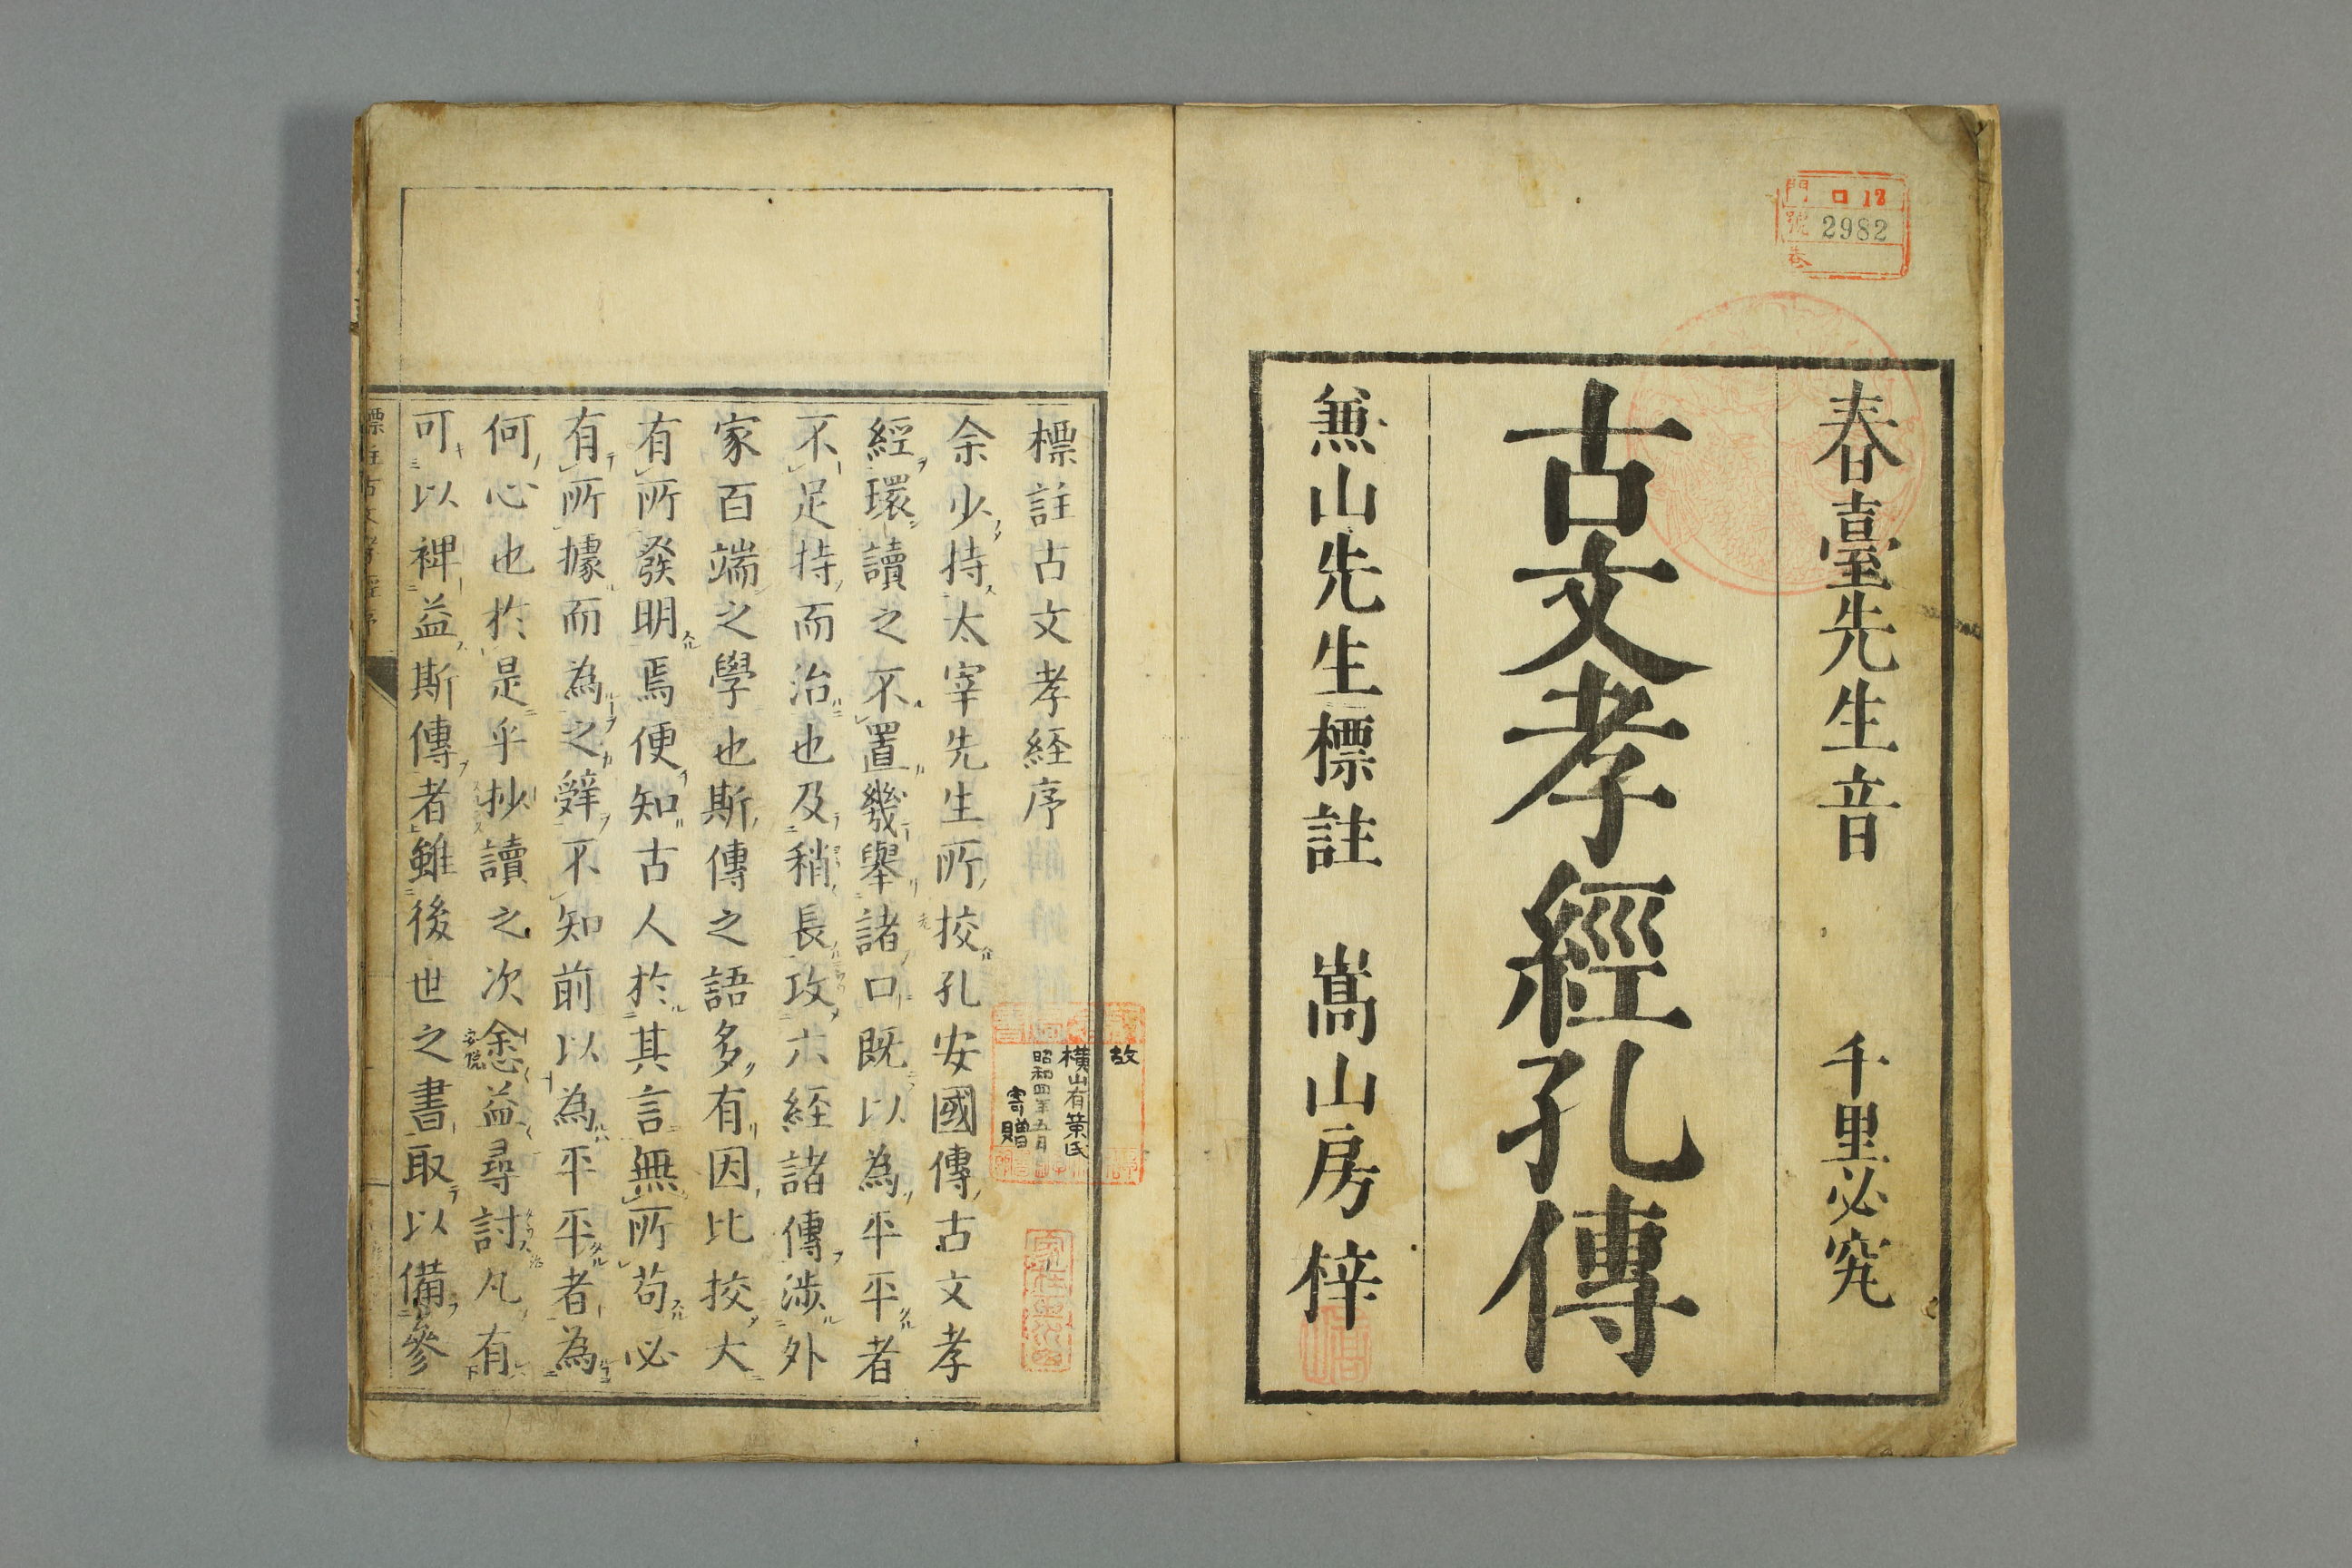 門 ロ 12
號 2982
卷
春臺先生音 千里必究
古文孝經孔傳
兼山先生標註 嵩山房梓
標註古文孝経序
余少持太宰先生所挍孔安國傳古文孝
經環讀之不置幾舉諸口既以為平平者
不足持而治也及稍長攻六経諸傳涉外
家百端之學也斯傳之語多有因比挍大
有所發明焉便知古人於其言無所苟必
有所據而為之辤不知前以為平平者為
何心也於是乎抄讀之次悆益尋討凡有
可以裨益斯傳者雖後世之書取以備參
故
横山有策氏
昭和四年五月
寄贈